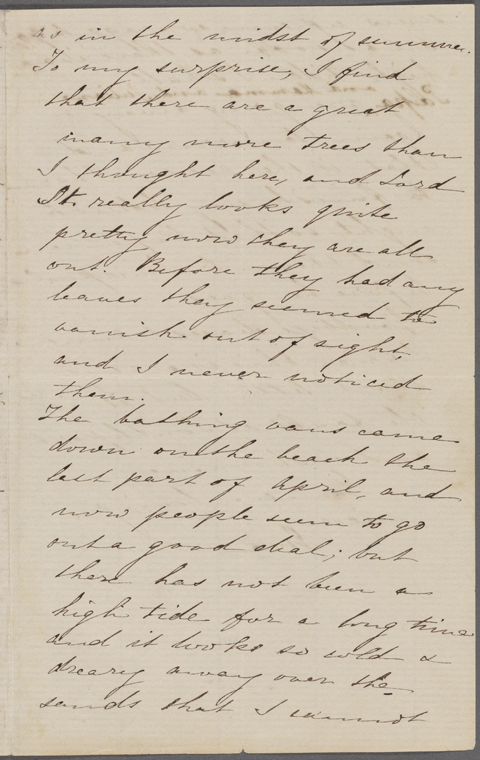 as in the midst of summer.
To my surprise, I find
that there are a great
many more trees than
I thought here, and Lord
St. really looks quite
pretty now they are all
out. Before they had any
leaves they seemed to
vanish out of sight,
and I never noticed
them.
The bathing vans came
down on the beach the
last part of April, and
now people seem to go
out a good deal; but
there has not been a
high tide for a long time
and it looks so wild &
dreary away over the
sands that I cannot